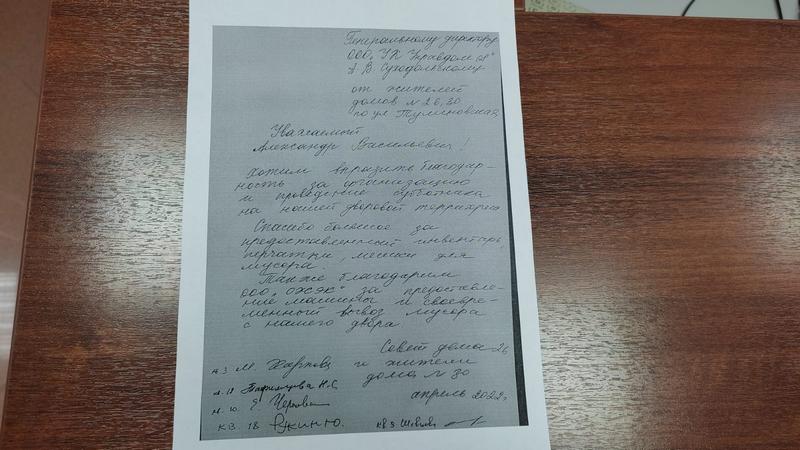 Генеральному директору
ООО „УК
А В. Суходольскому
от жителей
домов № 26, 30
по ул
Уважаемый
Александр Васильевич!
Хотим выразить благодар-
ность за организацию
и проведение субботника
на нашей дворовой территории
Спасибо большое за
предоставленный инвентарь,
перчатки, мешки для
мусора.
Также благодарим
ООО „ОХЭК" за предоставле-
ние машины и своевре-
менный вывоз мусора
с нашего двора.
Совет дома 26
и жители
дома № 30
апрель 2022г
кв. 18